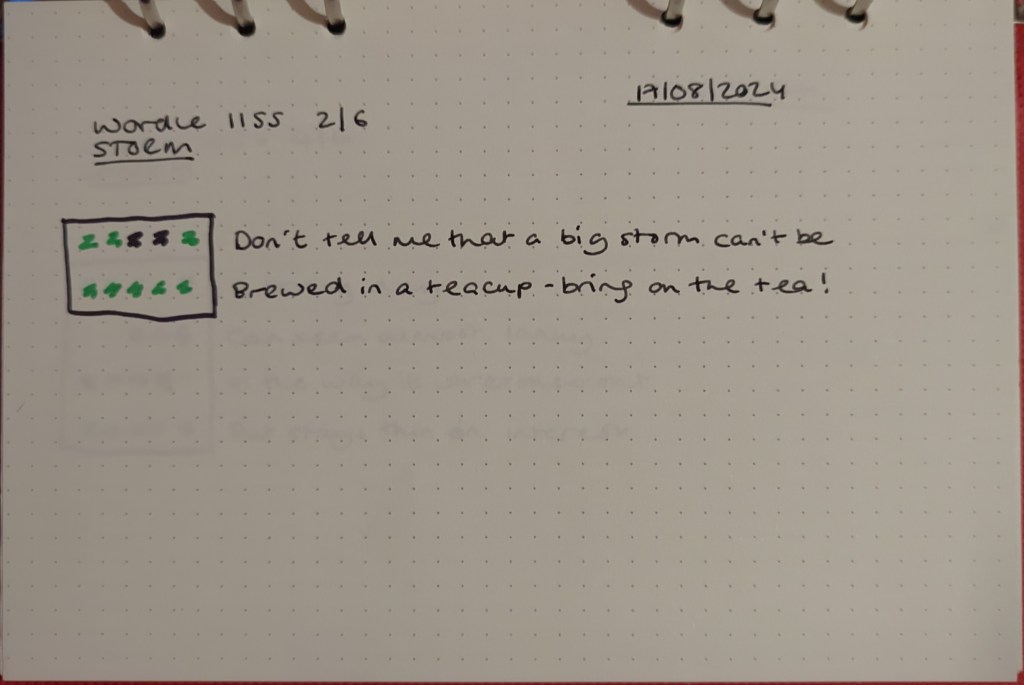 17/08/2024
Wordle 1155 2/6
STORM
Don't tell me that a big storm can't be
Brewed in a teacup - bring on the tea!